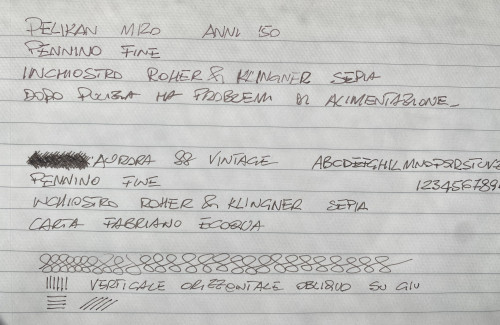 PELIKAN M120 ANNI '50
PENNINO FINE
INCHIOSTRO ROHER & KLINGNER SEPIA
DOPO PULIZIA HA PROBLEMI DI ALIMENTAZIONE
AURORA 88 VINTAGE ABCDEFGHILMNOPQRSTUVZ
PENNINO FINE 1234567894
INCHIOSTRO ROHER & KLINGNER SEPIA
CARTA FABRIANO ECOQUA
VERTICALE ORIZZONTALE OBLIQUO SU GIU